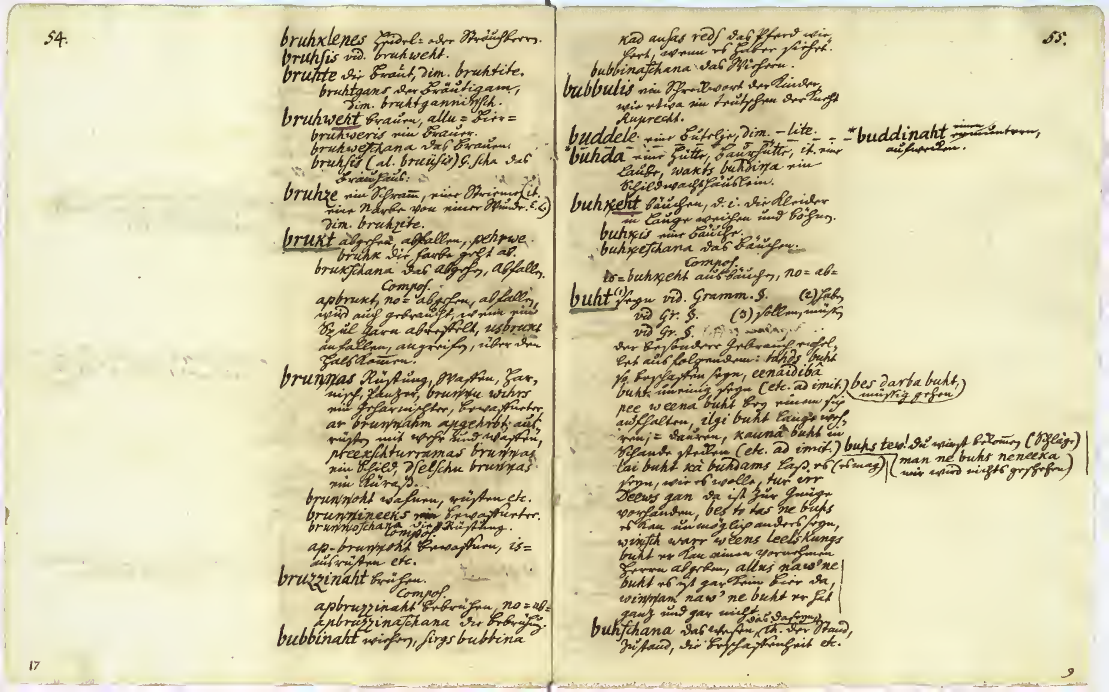 54.
bruhklenes Heidel- oder Strickbeern.
bruhsis vid. bruhweht.
bruhte die Braut, dim. bruhtite.
bruhtgans der Bräutigam,
dim. bruhtganninsch.
bruhweht brauen, allu = Bier =
bruhweris ein Brauer.
bruhweschana das Brauen.
bruhsis (al. bruusis) G. scha das
Brauhaus.
bruhze ein Schram, eine Strieme (it.
eine Narbe von einer Wunde.
dim. bruhzite.
brukt abgehen, abfallen, pehrwe
bruhk die Farbe geht ab.
brukschana das abgehen, abfallen.
Compos.
apbrukt, no= abgehen, abfallen,
wird auch gebraucht, wenn ein
Garn usbrukt
anfallen, angreifen, über den
Hals kommen.
brunnas Rüstung, Waffen, Har-
nisch, Panzer, brunnu wihrs
ein Geharnischter, bewaffneter
ar brunnahm apgehrbt aus-
rüsten mit Wehr und Waffen,
preekschturramas brunnas
ein Schild, dselschu brunnas
ein Küraß.
brunnoht wafnen, rüsten etc.
brunnineeks ein bewaffneter.
brunnoschana die Rüstung.
Compos.
ap-brunnoht bewaffnen, is=
ausrüsten etc.
bruzzinaht brühen.
Compos.
apbruzzinaht bebrühen, no= ab=
apbruzzinaschana die bebrühung.
bubbinaht wiehern, sirgs bubbina
17
55.
kad ausas reds das Pferd wie-
hert, wenn es Haber siehet.
bubbinaschana das Wiehern.
bubbulis ein Schreckwort der Kinder,
wie etwa im teutschen der Knecht
Ruprecht.
buddele eine Buttelje, dim. -lite.
*buddinaht ermuntern,
aufwecken.
buhda eine Hütte, Baurhütte, it. eine
Laube, wakts buhdina ein
Schildwachthäuslein.
buhkeht bäuchen, d. i. die Kleider
in Lauge weichen und böhen.
buhkis eine Bäuche.
buhkeschana das bäuchen.
Compos.
is=buhkeht ausbäuchen, no= ab=
buht (1) seyn vid. Gramm. §. (2) haben
vid Gr. §. (3) sollen, müssen
vid Gr. §.
der besondere Gebrauch erhel-
let aus folgendem: tahds buht
so beschaffen seyn, eenaidibâ
buht uneinig seyn (etc. ad imit.) bes darba buht,
müssig gehen)
pee weena buht bey einem sich
aufhalten, ilgi buht lange wäh-
ren, = dauren, kaunâ buht in
Schande stecken (etc. ad imit.) buhs tew! du wirst bekommen (Schläge)
lai buht kâ buhdams laß es (es mag) (man ne buhs neneeka
mir wird nichts geschehen)
seyn, wie es wolle, tur irr
Deews gan da ist zur Gnüge
vorhanden, bes to tas ne buhs
es kan unmöglich anders seyn,
winsch warr weens leels kungs
buht er kan einen vornehmen
Herrn abgeben, allus naw' ne
buht es ist gar kein Bier da,
winnam naw' ne buht er hat
ganz und gar nicht
buhschana das Wesen, das Daseyn, it. der Stand,
Zustand, die Beschaffenheit etc.
9